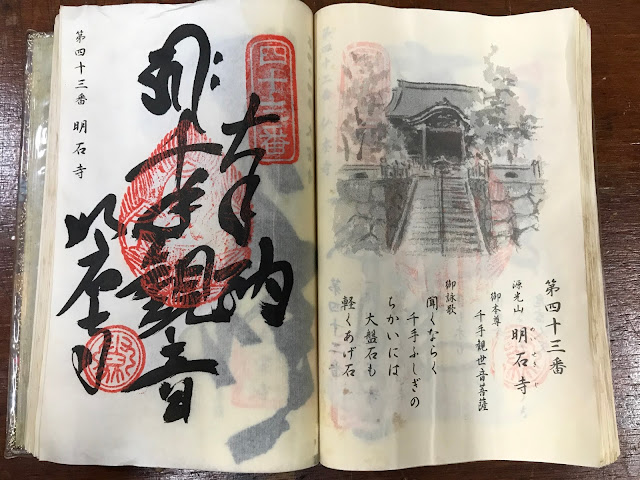 第四十三番
源光山 明石寺
御本尊
千手観世音菩薩
御詠歌
聞くならく
千手ふしぎの
ちかいには
大盤石も
軽くあげ石
四十三番
奉納
千手観音
明石寺
第四十三番 明石寺